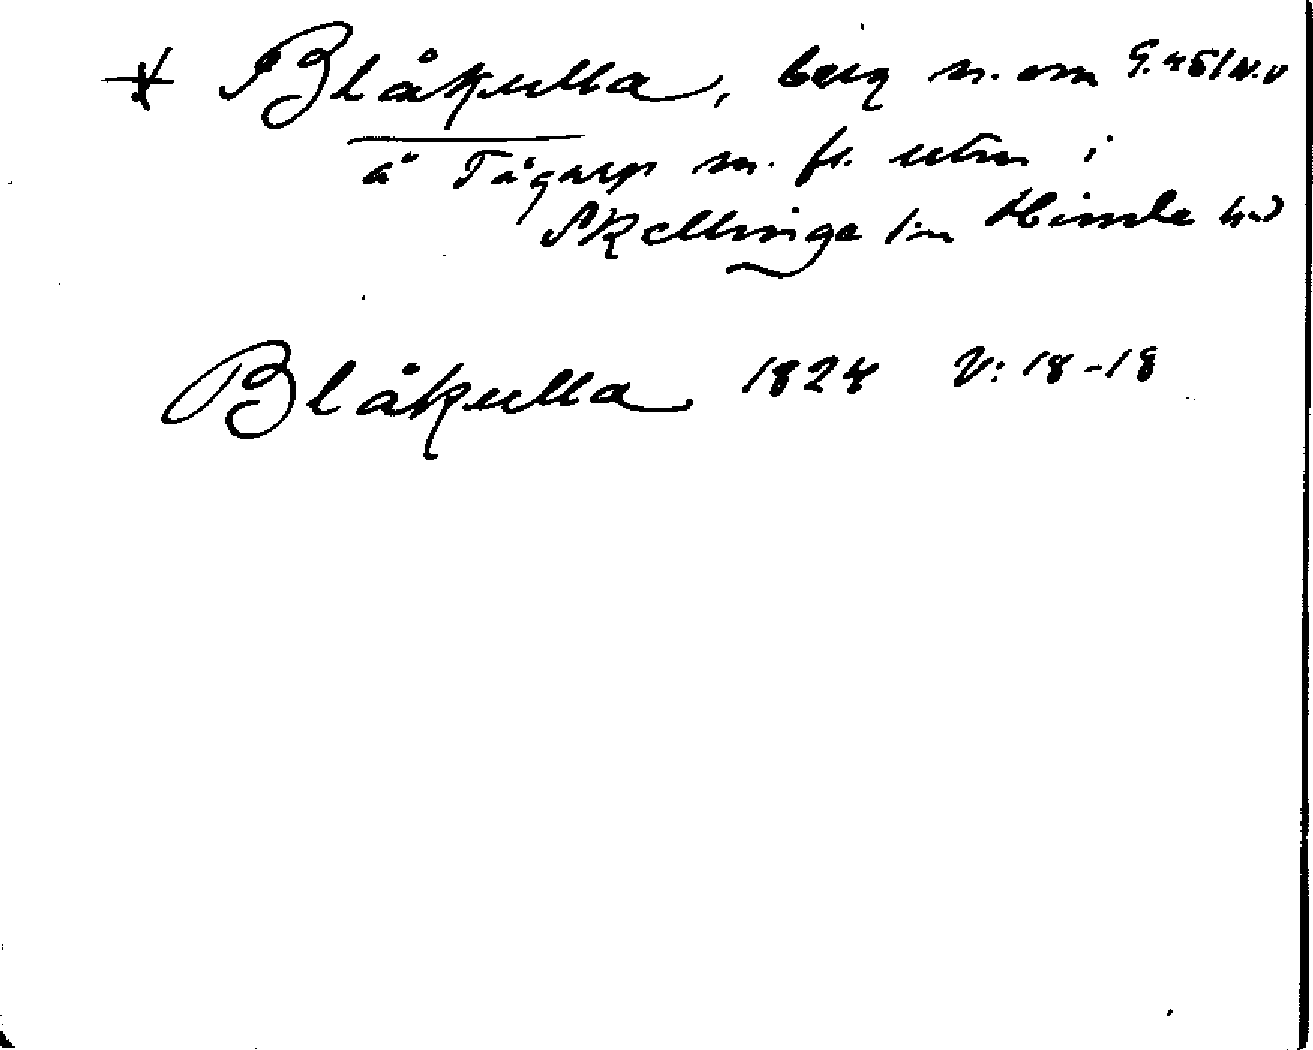 Blåkulla, berg n. om G. 45/N.V
å Tågarp m. fl. utm i
Skellinge sn Himle hd
Blåkulla 1828 V: 18-18